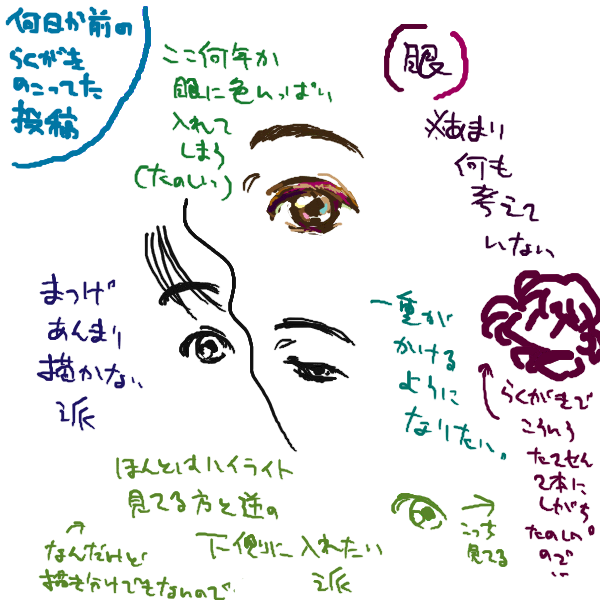 何日か前の
らくがき
のこってた
投稿
ここ何年か
眼に色いっぱい
入れて
しまう
(たのしいっ)
(眼)
※あまり
何も
考えて
いない
まつげ
あんまり
描かない
派
一重が
かける
ように
なりたい。
らくがきで
こういう
たてせん
2本に
しがち
たのしい。
ので
ほんとはハイライト
見てる方と逆の
下側に入れたい
派
なんだけど
描き分けでもないので
→
こっち
見てる